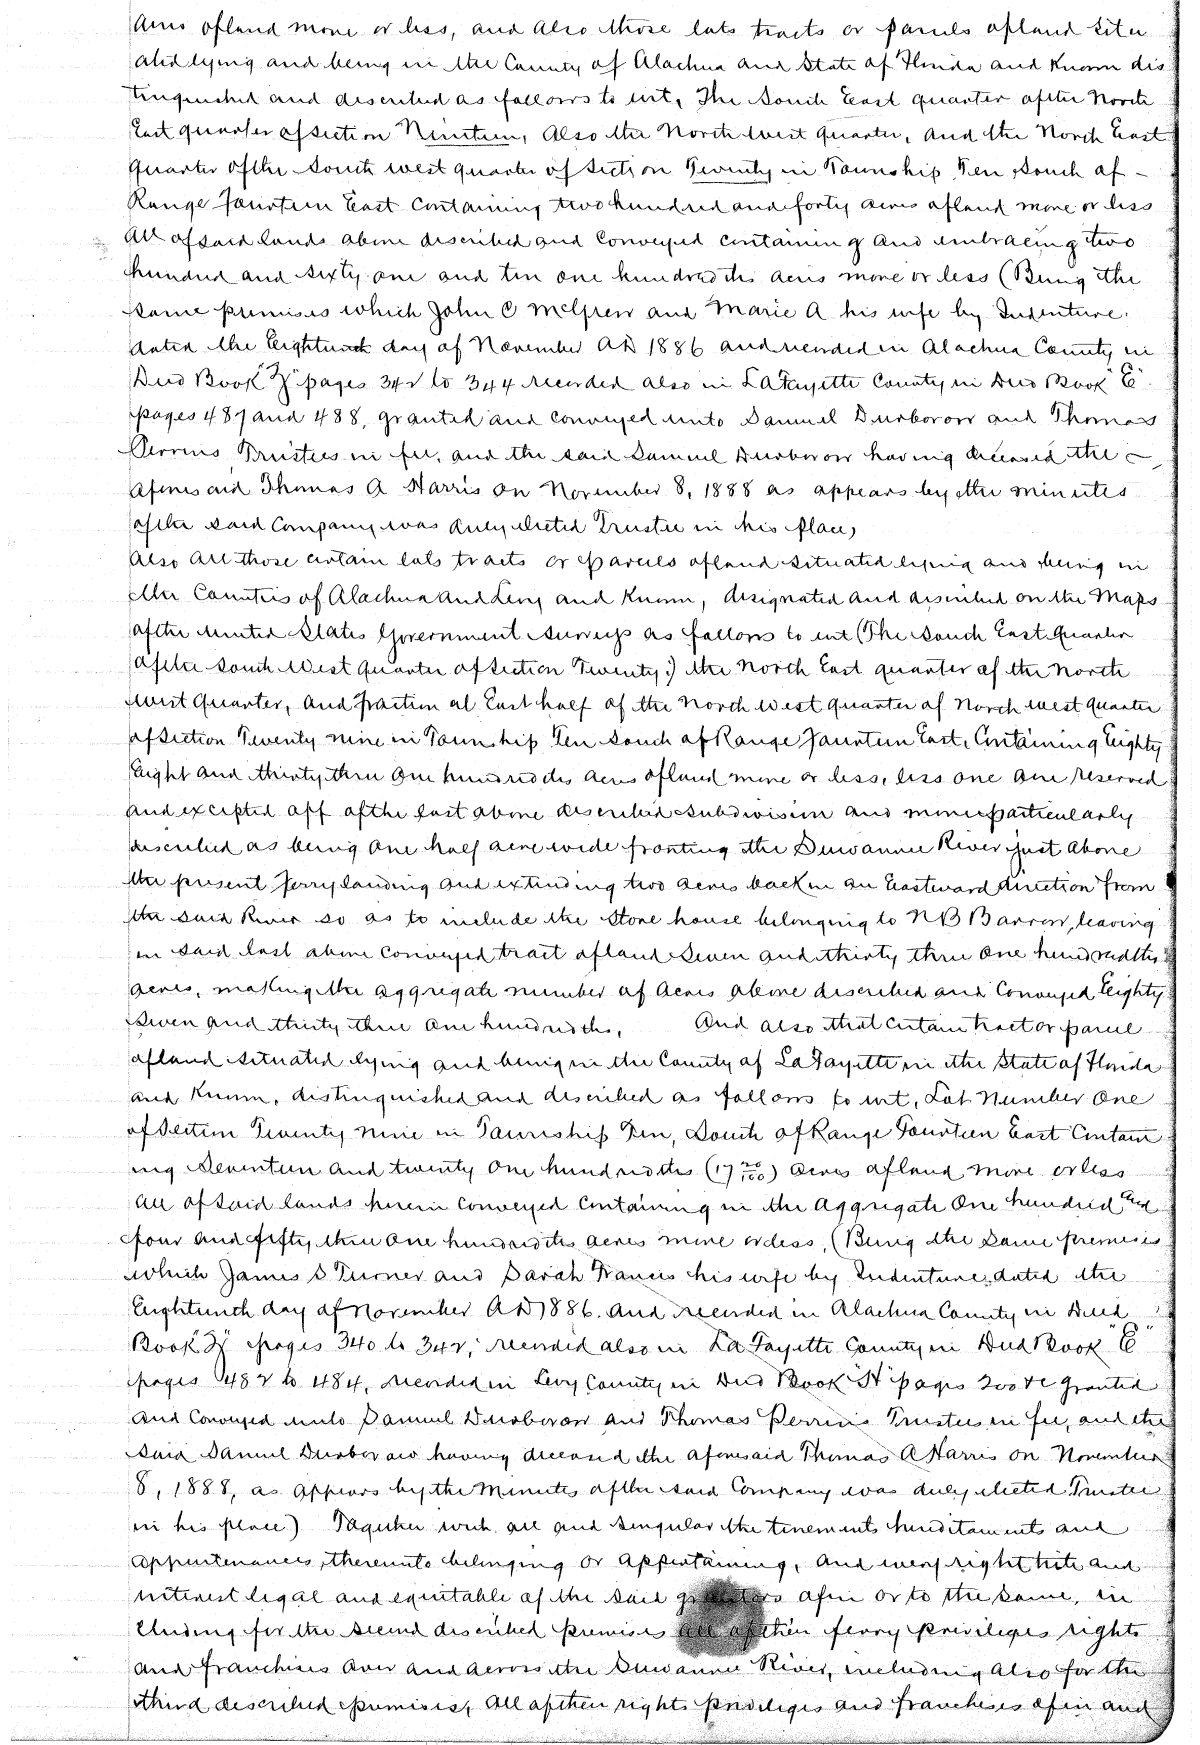 Acres of land more or less, and also those lots tracts or parcels of land situ
ated lying and being in the County of Alachua and State of Florida and Known dis
tinguished and described as follows to wit, The South East quarter of the North
East quarter of Section Nineteen, Also the North West quarter, and the North East
Quarter of the South west quarter of Section Twenty in Township Ten South of -
Range Fourteen East Containing two hundred and forty acres of land more or less
All of said lands above described and Conveyed containing and embracing two
hundred and sixty one and ten one hundredths acres more or less (Being the
same premises which John C McGrew and Marie A his wife by Indenture.
dated the Eighteenth day of November AD 1886 and recorded in Alachua County in
Deed Book "Z" pages 342 to 344 recorded also in LaFayette County in Deed Book "E"
pages 487 and 488, granted and conveyed unto Samuel Durborow and Thomas
Perrins Trustees in fee, and the said Samuel Durborow having deceased the -
Aforesaid Thomas A Harris on November 8, 1888 as appears by the minutes
of the said Company was duly elected Trustee in his place,
Also all those certain lots tracts or parcels of land situated lying and being in
the Counties of Alachua and Levy and Known, designated and described on the Maps
of the United States Government Surveys as follows to wit (The South East Quarter
of the South West quarter of Section Twenty:) the North East quarter of the North
West Quarter, and fraction al East half of the North West quarter of North west quarter
of Section Twenty nine in Township Ten South of Range Fourteen East, Containing Eighty
Eight and thirty three one hundredths acres of land more or less, less one acre reserved
and excepted off of the last above described subdivision and more particularly
described as being one half acre wide fronting the Suwannee River just above
the present ferry landing and extending two acres back in an Eastward direction from
the said River so as to include the Store house belonging to N B Barron, leaving
in said last above conveyed tract of land Seven and thirty three one hundredths
acres, making the aggregate number of Acres above described and Conveyed Eighty
Seven and thirty three one hundredths, And also that certain tract or parcel
of land situated lying and being in the County of LaFayette in the State of Florida
and Known, distinguished and described as follows to wit, Lot Number One
of Section Twenty nine in Township Ten, South of Range Fourteen East Contain
ing Seventeen and twenty one hundredths (17 20/100) acres of land more or less
All of said lands herein conveyed Containing in the Aggregate One hundred and
four and fifty three one hundredths acres more or less, (Being the Same premises
which James S Turner and Sarah Francis his wife by Indenture, dated the
Eighteenth day of November AD 1886. and recorded in Alachua County in Deed
Book "Z" pages 340 to 342, recorded also in LaFayette County in Deed Book "E"
pages 482 to 484, recorded in Levy County in Deed Book "H" pages 200 &c granted
and Conveyed unto Samuel Durborow and Thomas Perrins Trustees in fee, and the
said Samuel Durborow having deceased the aforesaid Thomas A Harris on November
8, 1888, as appears by the Minutes of the said Company was duly elected Trustee
in his place) Together with all and singular the tenements hereditaments and
appurtenances, thereunto belonging or appertaining, and every right title and
interest legal and equitable of the said grantors of in or to the same, in
cluding for the second described premises all of their ferry privileges rights
and franchises over and across the Suwannee River, including also for the
third described premises, all of their rights privileges and franchises of in and